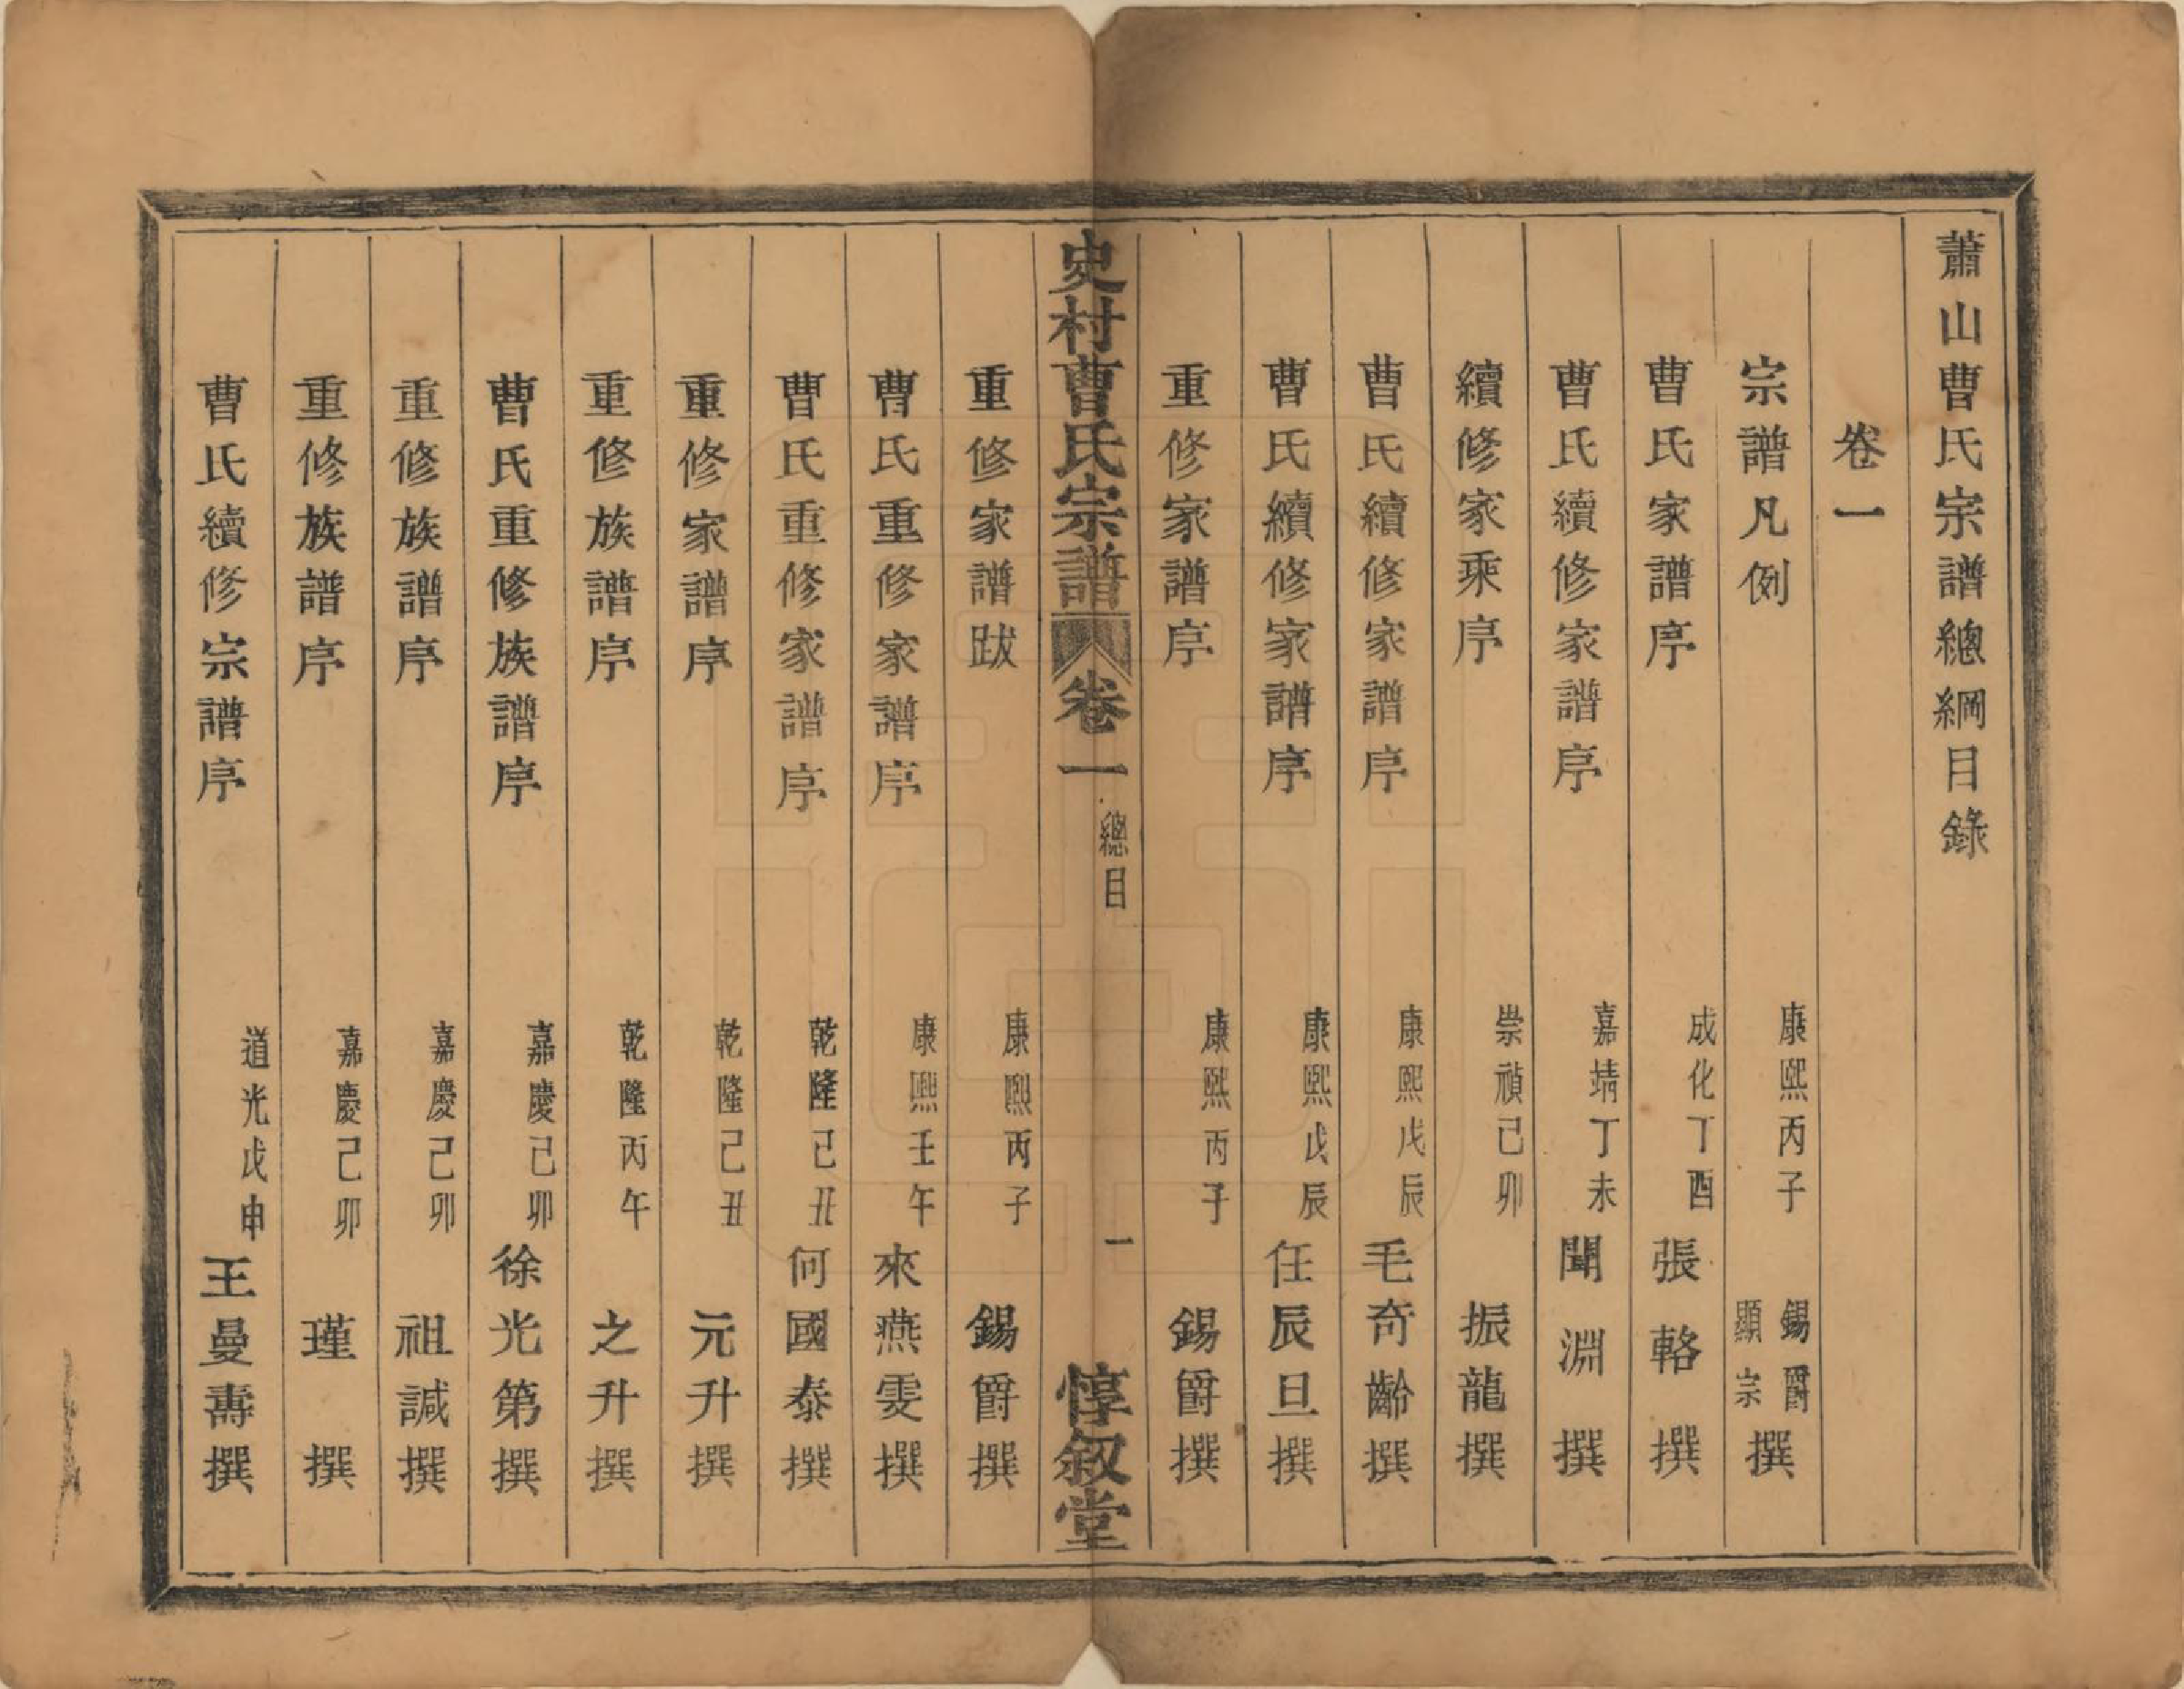 蕭山曹氏宗譜總綱目錄
卷一
宗譜凡例 康熙丙子 錫爵 顯宗 撰
曹氏家譜序 成化丁酉 張輅撰
曹氏續修家譜序 嘉靖丁未 聞淵撰
續修家乘序 崇禎己卯 振龍撰
曹氏續修家譜序 康熙戊辰 毛奇齡撰
曹氏續修家譜序 康熙戊辰 任辰旦撰
重修家譜序 康熙丙子 錫爵撰
史村曹氏宗譜 卷一 總目 一 惇叙堂
重修家譜跋 康熙丙子 錫爵撰
曹氏重修家譜序 康熙壬午 來燕雯撰
曹氏重修家譜序 乾隆己丑 何國泰撰
重修家譜序 乾隆己丑 元升撰
重修族譜序 乾隆丙午 之升撰
曹氏重修族譜序 嘉慶己卯 徐光第撰
重修族譜序 嘉慶己卯 祖諴撰
重修族譜序 嘉慶己卯 瑾撰
曹氏續修宗譜序 道光戊申 王曼壽撰